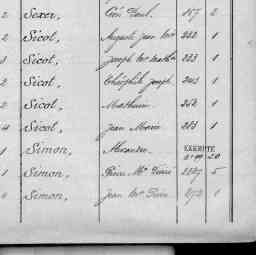 2 Sexer, Paul. 157 2
2 Sicot, Auguste Jean Mie 222 1
3 Sicot, Joseph M. Math. 223 1
2 Sicot, Théophile Joseph 243 1
2 Sicot, Mathurin 252 1
4 Sicot, Jean Marie 223 1
1 Simon, Alexandre EXEMPTÉ
1 Simon, Pierre Mie 5
1 Simon, Jean Pierre 272 1